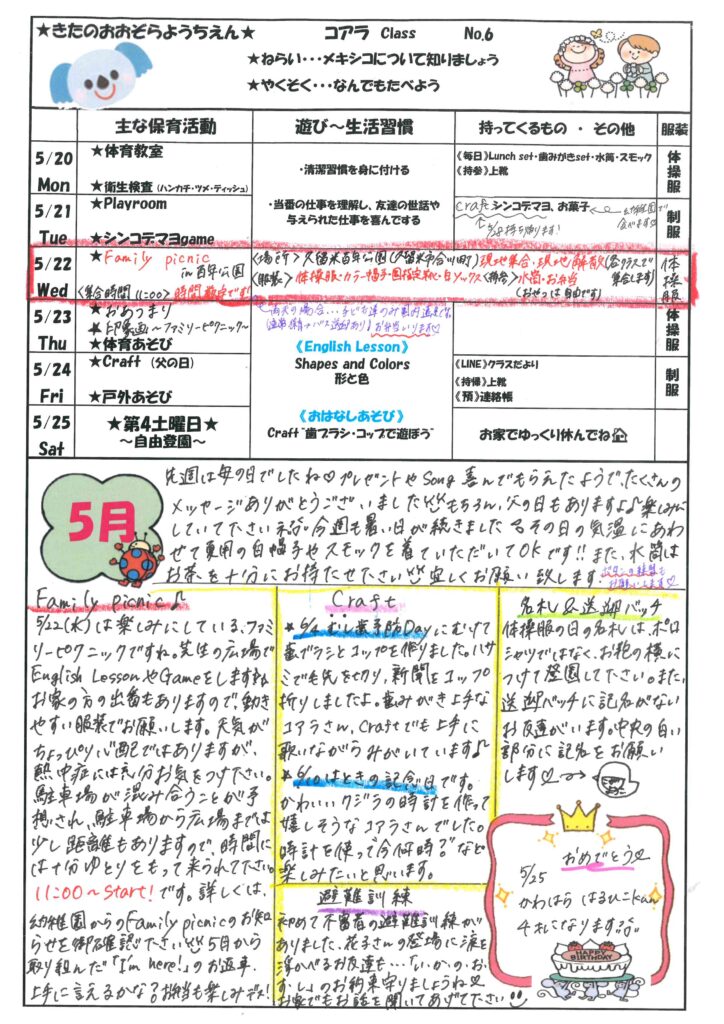 ★きたのおおぞらようちえん★ コアラ Class No.6
★ねらい・・・メキシコについて知りましょう
★やくそく・・・なんでもたべよう
主な保育活動 遊び〜生活習慣 持ってくるもの ・ その他 服装
5/20 Mon
★体育教室
★衛生検査 (ハンカチ・ツメ・ティッシュ)
・清潔習慣を身に付ける
《毎日》Lunch set・歯みがきset・水筒・スモック
《持参》上靴
体操服
5/21 Tue
★Playroom
★シンコデマヨgame
・当番の仕事を理解し、友達の世話や
与えられた仕事を喜んでする
craft シンコデマヨ、お菓子
制服
5/22 Wed
★Family picnic
in 百年公園
〈集合時間 11:00〉時間厳守です!
〈場所〉久留米百年公園(久留米市合川町) 現地集合・現地解散(各クラスで集合します)
〈服装〉体操服・カラー帽子・園指定靴・白ソックス 〈持参〉水筒・お弁当
(おやつは自由です)
体操服
5/23 Thu
★おあつまり
★印象画〜ファミリーピクニック〜
★体育あそび
体操服
《English Lesson》
Shapes and Colors
形と色
5/24 Fri
★Craft (父の日)
★戸外あそび
《LINE》クラスだより
《持帰》上靴
《預》連絡帳
制服
5/25 Sat
★第4土曜日★
〜自由登園〜
《おはなしあそび》
Craft“歯ブラシ・コップで遊ぼう”
お家でゆっくり休んでね
5月
先週は母の日でしたね♡プレゼントやSong喜んでもらえたようで、たくさんの
メッセージありがとうございました もちろん、父の日もありますよ♪楽しみに
していて下さいネ 今週も暑い日が続きました その日の気温にあわ
せて夏用の白帽子やスモックを着ていただいてOKです!!また、水筒は
お茶を十分にお持たせ下さい 宜しくお願い致します。
Family picnic♪
5/22(水)は楽しみにしている、ファミ
リーピクニックですね。芝生の広場で
English LessonやGameをしますよ
お家の方の出番もありますので、動き
やすい服装でお願いします。天気が
ちょっぴり心配ではありますが、
熱中症には充分お気をつけ下さい。
駐車場が混み合うことが予
想され、駐車場から広場までは
少し距離もありますので、時間に
は十分ゆとりをもって来られて下さい。
11:00〜Start!です。詳しくは、
幼稚園からのFamily picnicのお知
らせを御確認下さい 5月から
取り組んだ「I'm here!」のお返事、
上手に言えるかな?お弁当も楽しみデス!
Craft
★6/4むし歯予防Dayにむけて
歯ブラシとコップを作りました。ハサ
ミで毛先を切り、新聞をコップ
折りしましたよ。歯みがき上手な
コアラさん、Craftでも上手に
歌いながらみがいています♪
★6/10はときの記念日です。
かわいいクジラの時計を作って
嬉しそうなコアラさんでした。
時計を使って“今何時?”など
楽しみたいと思います。
避難訓練
初めて不審者の避難訓練が
ありました。花子さんの登場に涙を
浮かべるお友達も…「い・か・の・お・
す・し」のお約束守りましょうね
お家でもお話を聞いてあげて下さい
名札&送迎バッチ
体操服の日の名札は、ポロ
シャツではなく、お花の横に
つけて登園して下さい。また、
送迎バッチに記名がない
お友達がいます。中央の白い
部分に記名をお願い
します♡→
おめでとう♡
5/25
かわはら はるひこkun
4才になります
HAPPY BIRTHDAY